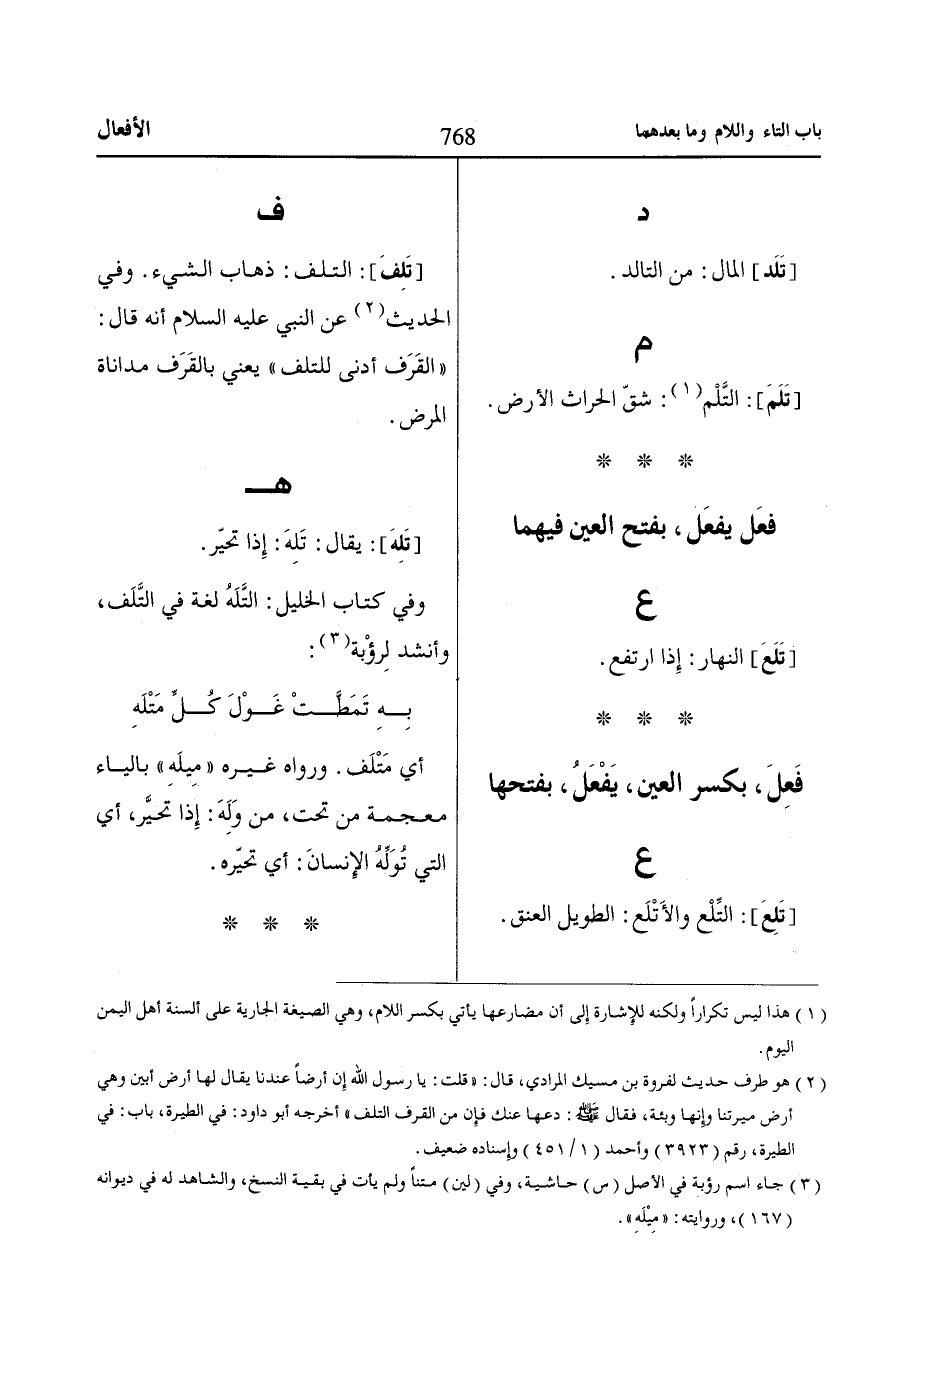 باب التاء واللام وما بعدهما
768
الأفعال
د
[تَلَد] المال: من التالد.
م
[تَلَمَ]: التَّلْم(١): شقّ الحراث الأرض.
❊ ❊ ❊
فعَل يفعَل، بفتح العين فيهما
ع
[تَلَعَ] النهار: إذا ارتفع.
❊ ❊ ❊
فَعِلَ، بكسر العين، يَفْعَلُ، بفتحها
ع
[تَلِعَ]: التَّلْع والأَتْلَع: الطويل العنق.
ف
[تَلِفَ]: التلف: ذهاب الشيء. وفي
الحديث(٢) عن النبي عليه السلام أنه قال:
«القَرَف أدنى للتلف» يعني بالقَرَف مداناة
المرض.
هـ
[تَلِهَ]: يقال: تَلِهَ: إذا تحيّر.
وفي كتاب الخليل: التَّلَهُ لغة في التَّلَف،
وأنشد لرؤْبة(٣):
بِهِ تَمَطَّتْ غَوْلَ كُلِّ مَتْلَهِ
أي مَتْلَف. ورواه غيره «مِيلَهِ» بالياء
معجمة من تحت، من وَلَهَ: إذا تحيَّر، أي
التي تُوَلِّهُ الإنسانَ: أي تحيّره.
❊ ❊ ❊
(١) هذا ليس تكراراً ولكنه للإشارة إلى أن مضارعها يأتي بكسر اللام، وهي الصيغة الجارية على ألسنة أهل اليمن
اليوم.
(٢) هو طرف حديث لفروة بن مسيك المرادي، قال: «قلت: يا رسول الله إن أرضاً عندنا يقال لها أرض أبين وهي
أرض ميرتنا وإنها وبئة، فقال ﷺ: دعها عنك فإن من القرف التلف» أخرجه أبو داود: في الطيرة، باب: في
الطيرة، رقم (٣٩٢٣) وأحمد (١/٤٥١) وإسناده ضعيف.
(٣) جاء اسم رؤبة في الأصل (س) حاشية، وفي (لين) متناً ولم يأت في بقية النسخ، والشاهد له في ديوانه
(١٦٧)، وروايته: «مِيْلَهِ».